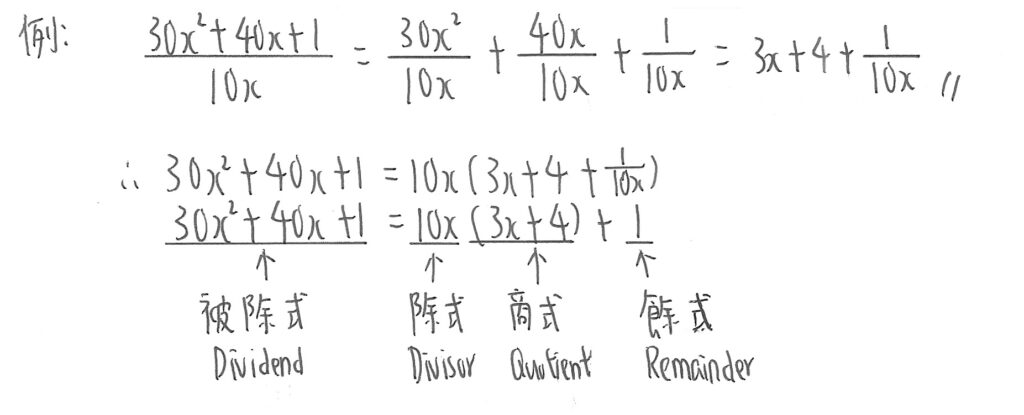 例: (30x²+40x+1)/(10x) = 30x²/10x + 40x/10x + 1/10x = 3x+4+1/10x //
∴ 30x²+40x+1 = 10x(3x+4+1/10x)
30x²+40x+1 = 10x(3x+4)+1
↑ ↑ ↑ ↑
被除式 除式 商式 餘式
Dividend Divisor Quotient Remainder